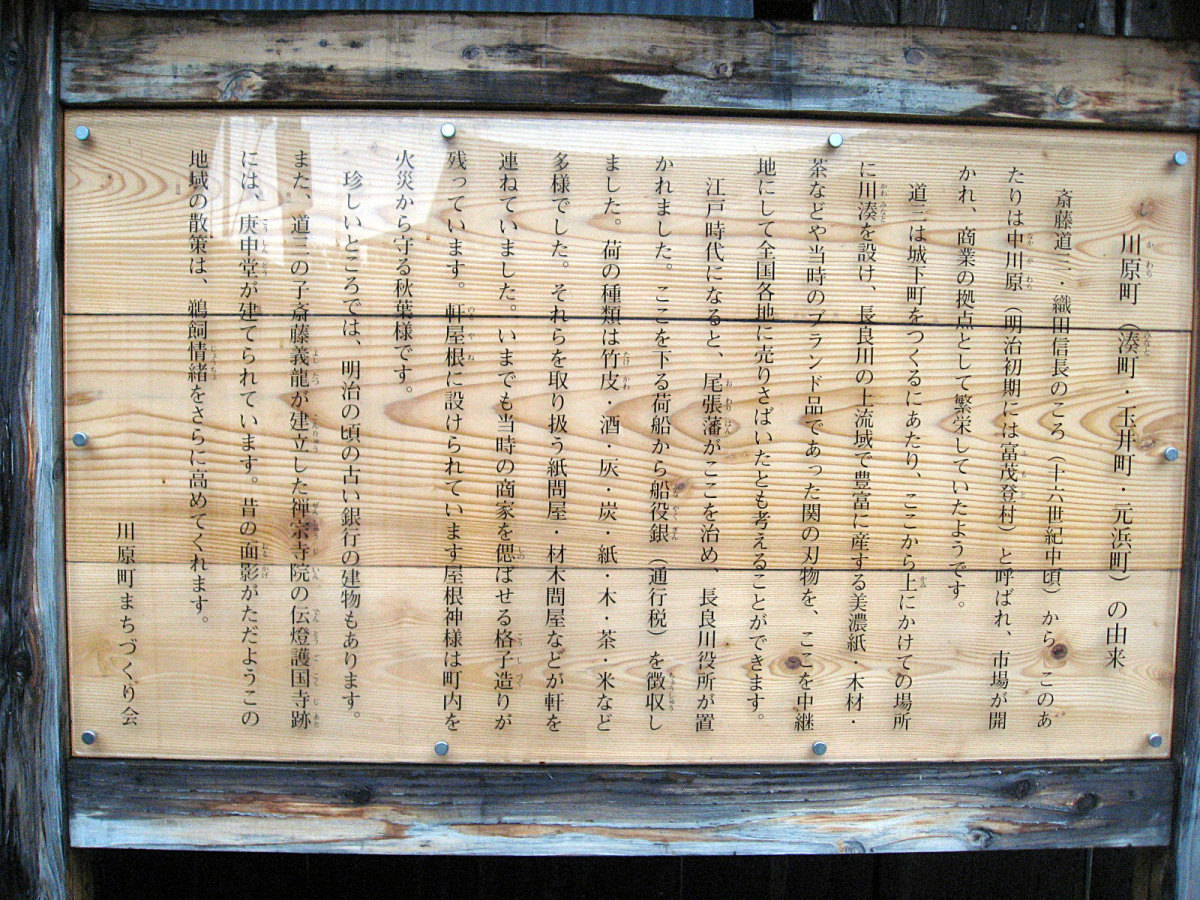 川原町（湊町・玉井町・元浜町）の由来
斎藤道三・織田信長のころ（十六世紀中頃）から、このあ
たりは中川原（明治初期には富茂登村）と呼ばれ、市場が開
かれ、商業の拠点として繁栄していたようです。
道三は城下町をつくるにあたり、ここから上にかけての場所
に川湊を設け、長良川の上流域で豊富に産する美濃紙・木材・
茶などや当時のブランド品であった関の刃物を、ここを中継
地にして全国各地に売りさばいたとも考えることができます。
江戸時代になると、尾張藩がここを治め、長良川役所が置
かれました。ここを下る荷船から船役銀（通行税）を徴収し
ました。荷の種類は竹皮・酒・灰・炭・紙・木・茶・米など
多様でした。それらを取り扱う紙問屋・材木問屋などが軒を
連ねていました。いまでも当時の商家を偲ばせる格子造りが
残っています。軒屋根に設けられています屋根神様は町内を
火災から守る秋葉様です。
珍しいところでは、明治の頃の古い銀行の建物もあります。
また、道三の子斎藤義龍が建立した禅宗寺院の伝燈護国寺跡
には、庚申堂が建てられています。昔の面影がただようこの
地域の散策は、鵜飼情緒をさらに高めてくれます。
川原町まちづくり会